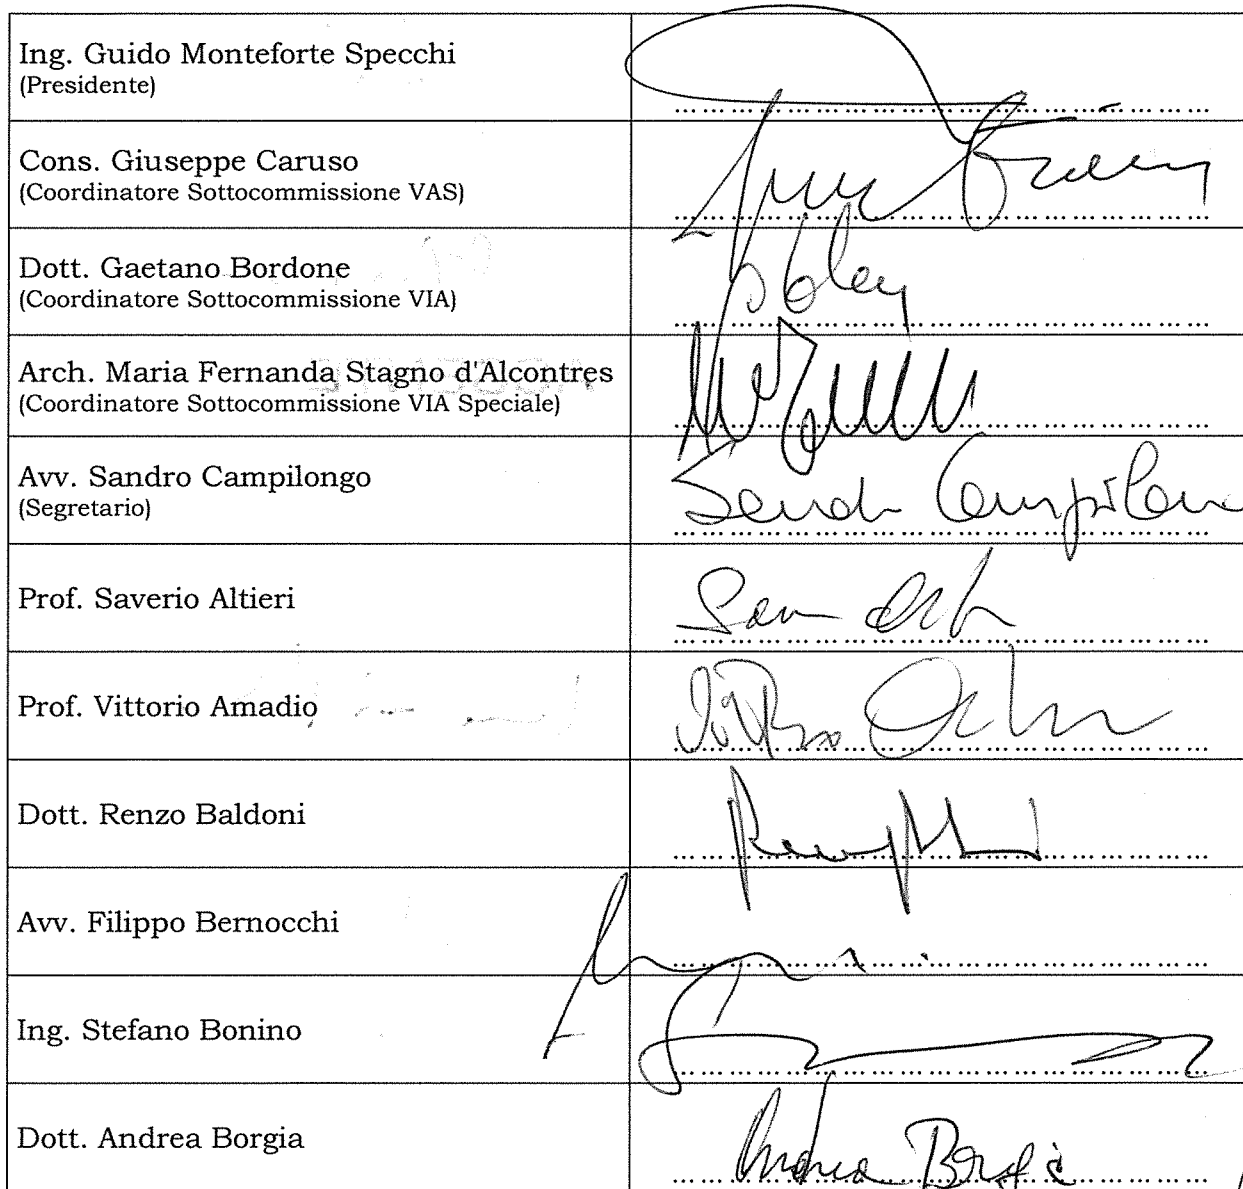 Ing. Guido Monteforte Specchi
(Presidente)
Cons. Giuseppe Caruso
(Coordinatore Sottocommissione VAS)
Dott. Gaetano Bordone
(Coordinatore Sottocommissione VIA)
Arch. Maria Fernanda Stagno d'Alcontres
(Coordinatore Sottocommissione VIA Speciale)
Avv. Sandro Campilongo
(Segretario)
Sandro Campilon
Prof. Saverio Altieri
Prof. Vittorio Amadio
Dott. Renzo Baldoni
Avv. Filippo Bernocchi
Ing. Stefano Bonino
Dott. Andrea Borgia
Andrea Borgia